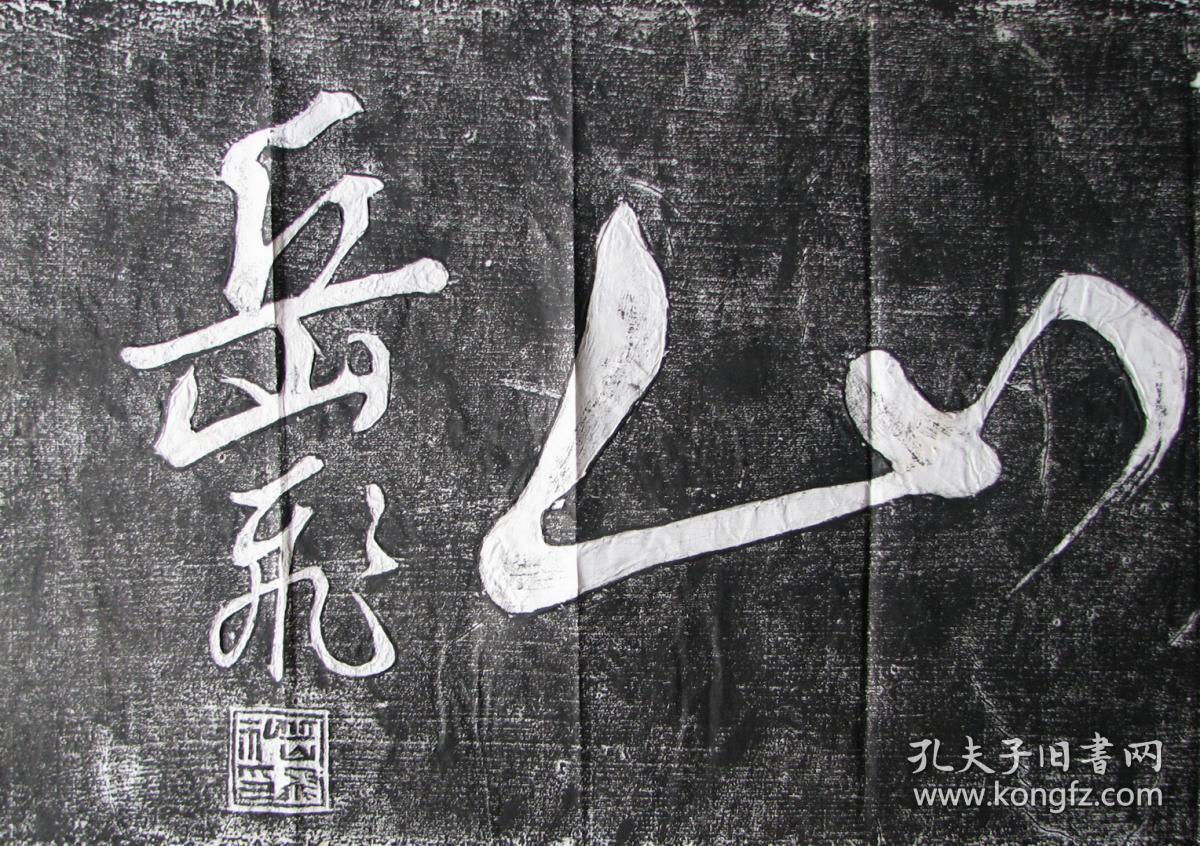 山
岳飛
孔夫子旧書网
www.kongfz.com